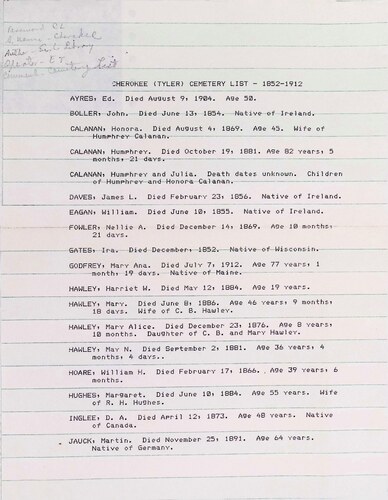 CHEROKEE (TYLER) CEMETERY LIST - 1852-1912
AYRES, Ed. Died August 9, 1904. Age 50.
BOLLER, John. Died June 13, 1854. Native of Ireland.
CALANAN, Honora. Died August 4, 1869. Age 45. Wife of
Humphrey Calanan.
CALANAN, Humphrey. Died October 19, 1881. Age 82 years, 5
months, 21 days.
CALANAN, Humphrey and Julia. Death dates unknown. Children
of Humphrey and Honora Calanan.
DAVES, James L. Died February 23, 1856. Native of Ireland.
EAGAN, William. Died June 10, 1855. Native of Ireland.
FOWLER, Nellie A. Died December 14, 1869. Age 10 months,
21 days.
GATES, Ira. Died December, 1852. Native of Wisconsin.
GODFREY, Mary Ana. Died July 7, 1912. Age 77 years, 1
month, 19 days. Native of Maine.
HAWLEY, Harriet W. Died May 12, 1884. Age 19 years.
HAWLEY, Mary. Died June 8, 1886. Age 46 years, 9 months,
18 days. Wife of C. B. Hawley.
HAWLEY, Mary Alice. Died December 23, 1876. Age 8 years,
10 months. Daughter of C. B. and Mary Hawley.
HAWLEY, May N. Died September 2, 1881. Age 36 years, 4
months, 4 days..
HOARE, William H. Died February 17, 1866. Age 39 years, 6
months.
HUGHES, Margaret. Died June 10, 1884. Age 55 years. Wife
of R. H. Hughes.
INGLEE, D. A. Died April 12, 1873. Age 48 years. Native
of Canada.
JAUCK, Martin. Died November 25, 1891. Age 64 years.
Native of Germany.